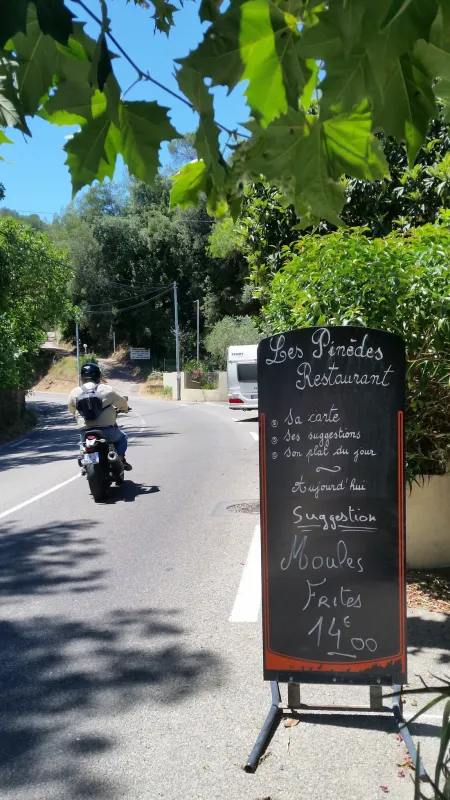 Les Pinèdes
Restaurant
Sa carte
Ses suggestions
Son plat du jour
Aujourd'hui
Suggestion
Moules
Frites
14€00